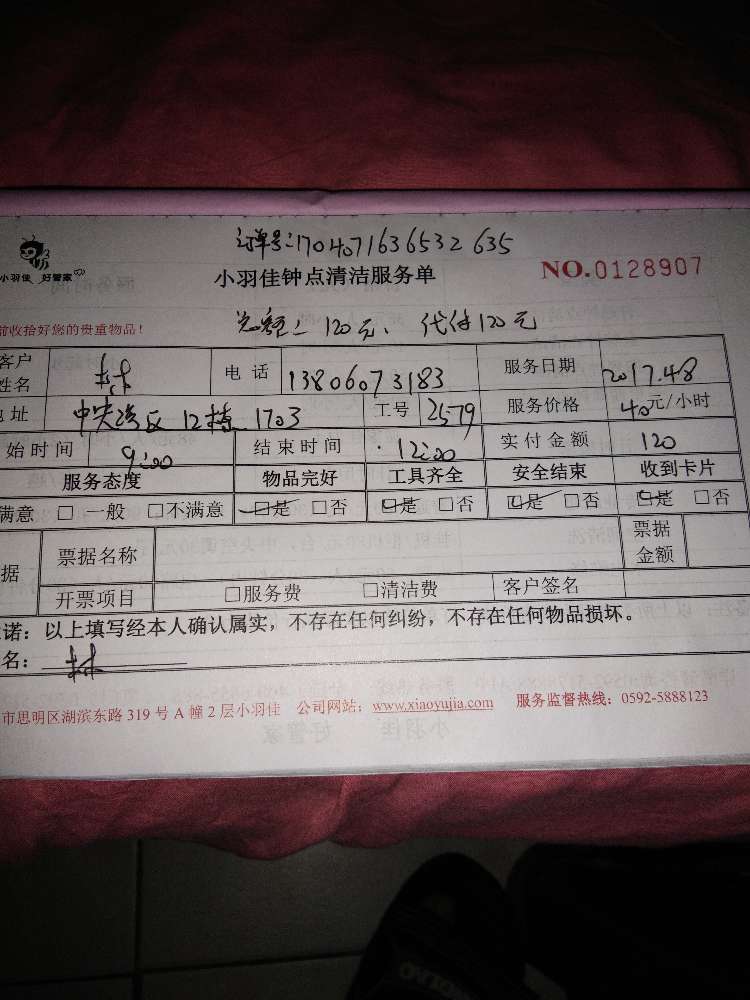 订单号:1704071636532635
小羽佳 好管家
小羽佳钟点清洁服务单
NO.0128907
前收拾好您的贵重物品!
120元、代付120元
客户姓名 林 电话 13806073183 服务日期 2017.4.8
地址 中央 区 12栋 1703 工号 2579 服务价格 40元/小时
始时间 9:00 结束时间 12:00 实付金额 120
服务态度 物品完好 工具齐全 安全结束 收到卡片
满意 □一般 □不满意 □是 □否 □是 □否 □是 □否 □是 □否
据 票据名称 票据金额
开票项目 □服务费 □清洁费 客户签名
诺:以上填写经本人确认属实,不存在任何纠纷,不存在任何物品损坏。
名: 林
市思明区湖滨东路 319 号 A 幢 2 层小羽佳 公司网站:www.xiaoyujia.com 服务监督热线:0592-5888123